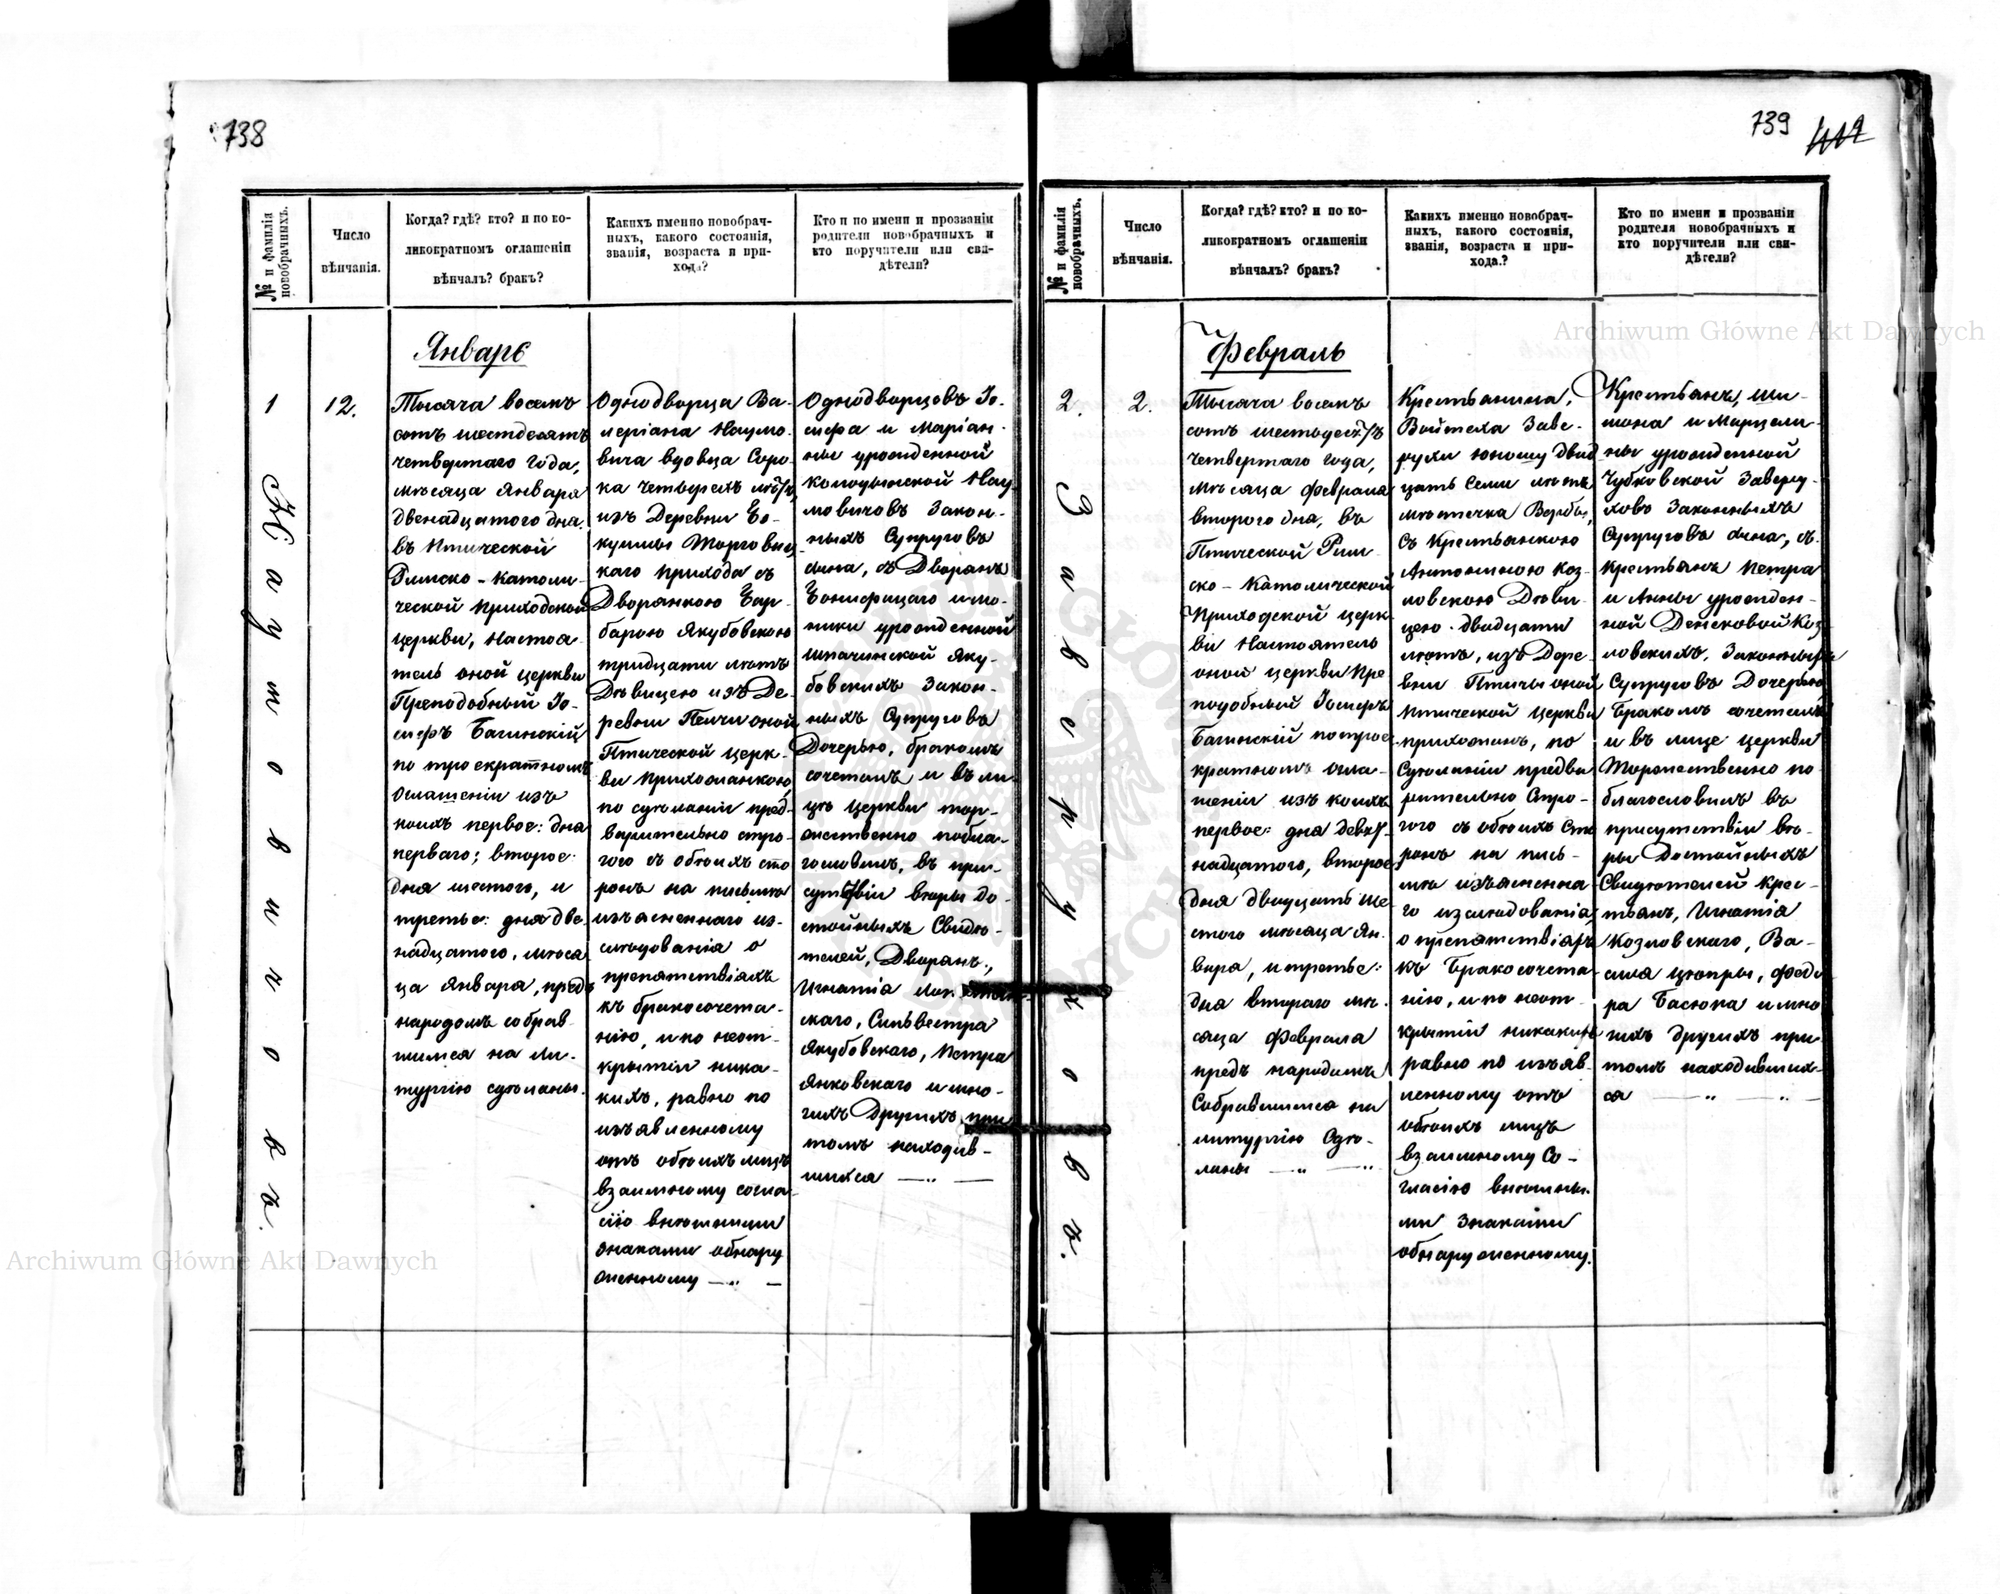 738
№ и фамилія новобрачныхъ.
Число вѣнчанія.
Когда? гдѣ? кто? и по ко-
ликократномъ оглашеніи
вѣнчалъ? бракъ?
Какихъ именно новобрач-
ныхъ, какого состоянія,
званія, возраста и при-
хода?
Кто и по имени и прозваніи
родители новобрачныхъ и
кто поручители или сви-
дѣтели?
1
Наумовичова.
12.
Январь
Тысяча восемь
сотъ шестдесятъ
четвертаго года,
мѣсяца Января
двенадцатого дня,
въ Птической
Римско-Католи-
ческой Приходской
церкви, Настоя-
тель оной церкви
Преподобный Іо-
сифъ Багинскій
по троекратномъ
оглашеніи изъ
коихъ первое: дня
перваго; второе:
дня шестого, и
третье: дня две-
надцатого, мѣся
ца Января, предъ
народомъ собрав
шимся на Ли-
тургію сдѣланы.
Однодворца Ва-
леріана Наумо-
вича вдовца Соро-
ка четырехъ лѣтъ,
изъ Деревни Бо-
куймы Торговиц
каго прихода съ
Дворянкою Бар-
барою Якубовскою
тридцати лѣтъ
Дѣвицею изъ Де-
ревни Птичи оной
Птической церк-
ви Прихожанкою,
по сдѣланіи пред-
варительно стро-
гого съ обѣихъ сто
ронъ на письмѣ
изъясненнаго из-
слѣдованія о
препятствіяхъ
къ бракосочета-
нію, и по неот-
крытіи ника-
кихъ, равно по
изъявленному
отъ обѣихъ лицъ
взаимному согла-
сію внѣшними
знаками обнару
женному —„ —
Однодворцовъ Іо-
сифа и Маріан-
ны урожденной
Колодынской Нау-
мовичовъ Закон-
ныхъ Супруговъ
сына, съ Дворянъ
Бонифацаго и Мо-
ники урожденной
Шпачинской Яку-
бовскихъ Закон-
ныхъ Супруговъ
Дочерью, бракомъ
сочеталъ и въ ли
цѣ церкви тор-
жественно побла-
гословилъ, въ при-
сутствіи вѣры до-
стойныхъ Свидѣ-
телей, Дворянъ,
Игнатія
скаго, Сильвестра
Якубовскаго, Петра
Янковскаго и мно-
гихъ Другихъ при
томъ находив-
шихся —„ —
739
№ и фамилія новобрачныхъ.
Число вѣнчанія.
Когда? гдѣ? кто? и по ко-
ликократномъ оглашеніи
вѣнчалъ? бракъ?
Какихъ именно новобрач-
ныхъ, какого состоянія,
званія, возраста и при-
хода?
Кто по имени и прозваніи
родителя новобрачныхъ и
кто поручители или сви-
дѣтели?
2.
Заверухова.
2.
Февраль
Тысяча восемъ
сотъ шестьдест/ъ
четвертаго года,
мѣсяца Февраля
второго дня, въ
Птической Рим-
ско-Католической
Приходской церк-
ви Настоятель
оной церкви Пре
подобный Іосифъ
Багинскій по трое-
кратномъ огла-
шеніи изъ коихъ
первое: дня девят-
надцатого, второе:
дня двадцать ше-
стого мѣсяца Ян-
варя, и третье:
дня второго мѣ-
сяца Февраля
предъ народомъ
Собравшимся на
литургію Сдѣ-
ланы —„ —„
Крестьянина,
Войтеха Заве-
рухи юношу двад
цать семи лѣтъ
мѣстечка Вербы,
съ Крестьянкою
Антониною Коз-
ловскою Дѣви-
цею двадцати
лѣтъ, изъ Дере-
вни Птичы оной
Птической церкви
прихожанъ, по
Сдѣланіи предва
рительно Стро-
гого съ обѣихъ Сто
ронъ на пись-
мѣ изъясненна
го изслѣдованія,
о препятствіяхъ
къ Бракосочета-
нію, и по неот-
крытіи никакихъ
равно по изъяв-
ленному отъ
обѣихъ лицъ
взаимному Со-
гласію внѣшны-
ми Знаками
обнаруженному.
Крестьянъ, Ши-
мона и Марцели-
ны урожденной
Чубковской Заверу-
ховъ Законныхъ
Супруговъ сына, съ
Крестьянъ Петра
и Анны урожден-
ной Денековой Коз-
ловскихъ, Законныхъ
Супруговъ Дочерью
Бракомъ сочеталъ
и въ лице церкви
Торжественно по-
благословилъ въ
присутствіи вѣ-
ры Достойныхъ
Свидѣтелей Крес-
тьянъ, Игнатія
Козловскаго, Ва-
силя Цюпры, Федо
ра Басюка и мно
гихъ другихъ при
томъ находивших-
ся —„ —„ —
Archiwum Główne Akt Dawnych
Archiwum Główne Akt Dawnych